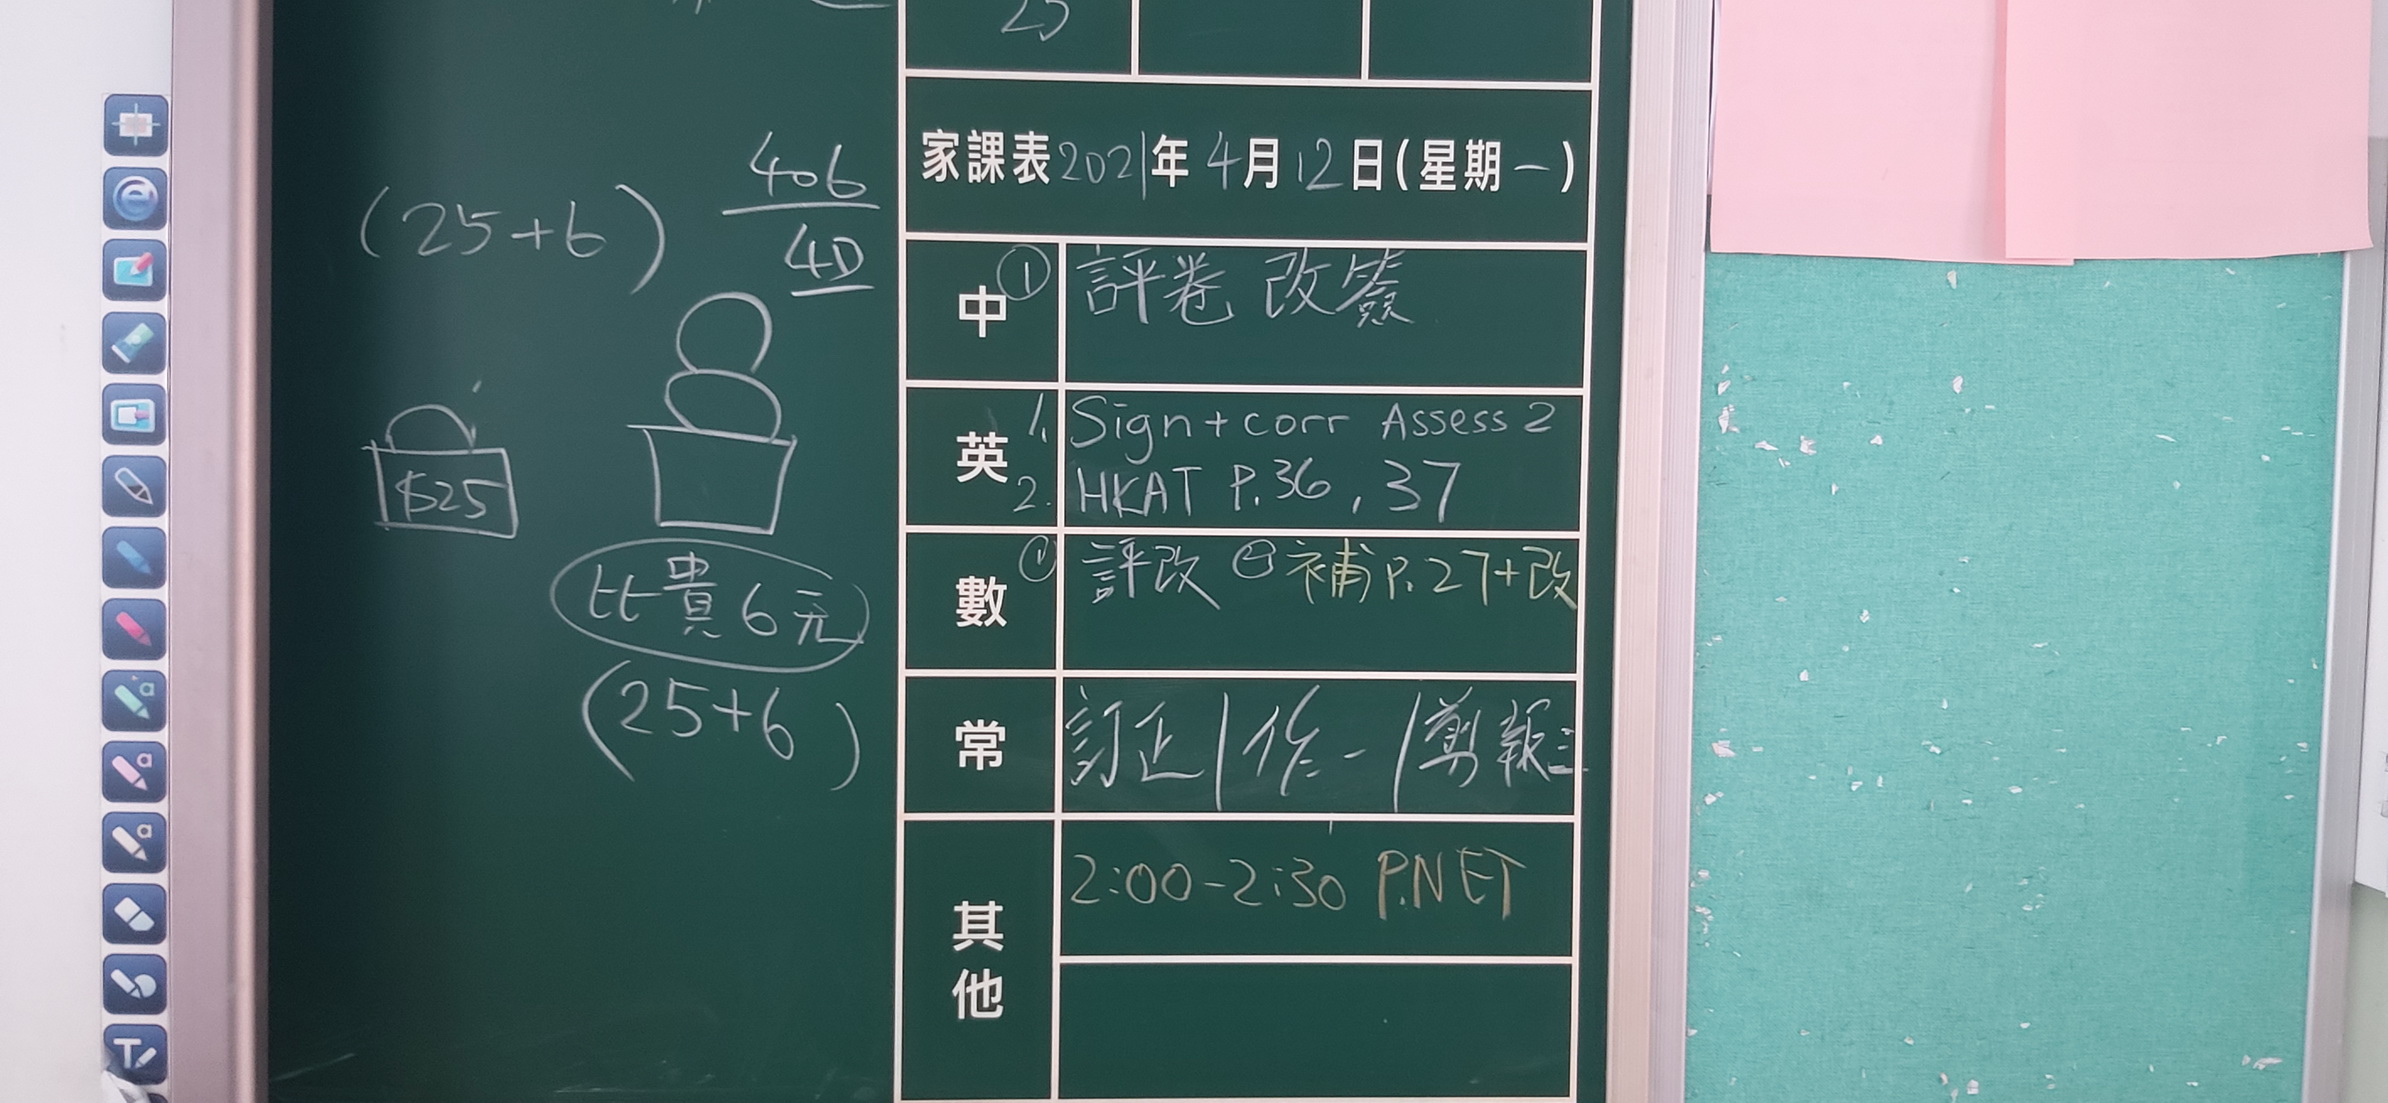 25
(25+6)
406
40
$25
比貴6元
(25+6)
家課表2021年4月12日(星期一)
中 ① 評卷 改簽
英 1. Sign+corr Assess 2
2. HKAT P.36, 37
數 ① 評改 ② 補P.27+改
常 訂正 | 作一 | 剪報三
其他 2:00-2:30 P.NET